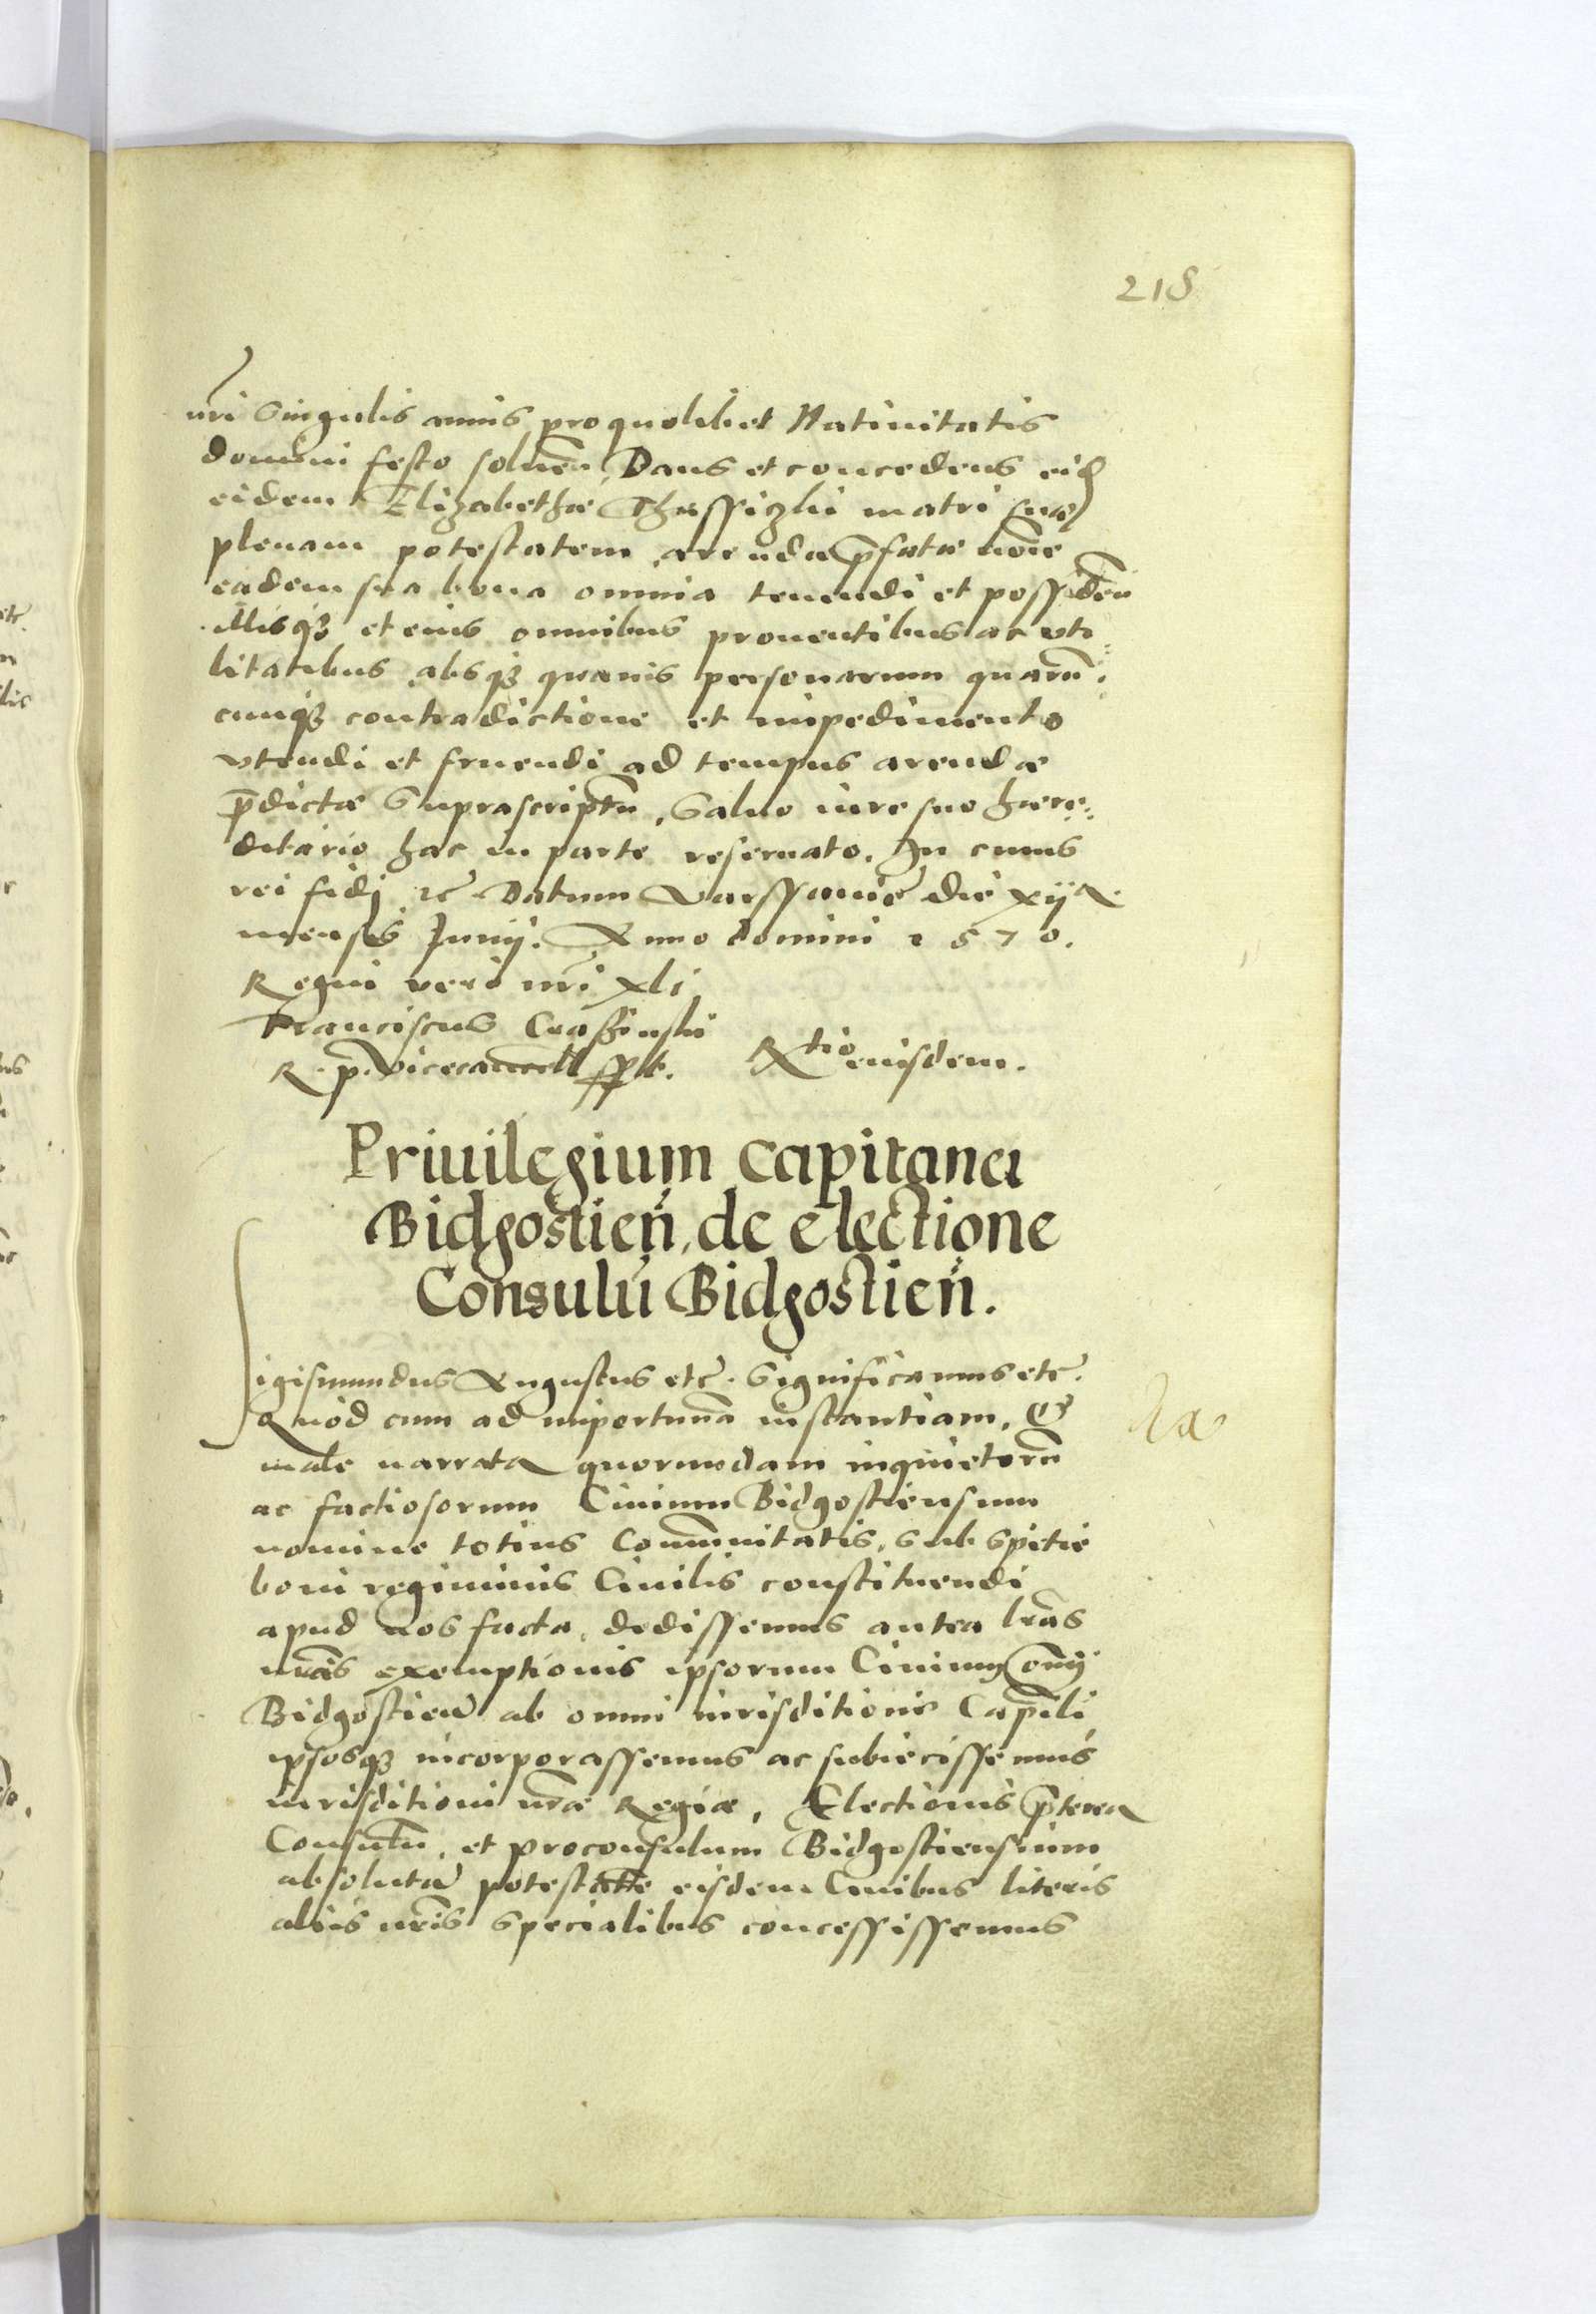 218
nri singulis annis pro quolibet Natiuitatis
domini festo soluen. Dans et concedens eid
eidem Elizabethæ matri suæ
plenam potestatem arendæ p̄fatæ nōie
eadem sua bona omnia tenendi et possiden̄
illisq3 et eius omnibus prouentibus ac vti
litatibus absq3 quauis personarum quarū
cunq3 contradictione et impedimento
vtendi et fruendi ad tempus arendæ
p̄dictæ suprascriptū, Saluo iure suo hære
ditario hac in parte reseruato. In cuius
rei fidē etc Datum Varssauie die xija
mensis Junij. Anno domini 1570.
Regni vero nr̄i xli
Franciscus Crasinski
R. p. Vicecancell sspt. Rtio eiusdem.
Priuilegium Capitanei
Bidgostien̄. de electione
Consulū Bidgostien̄.
Sigismundus Augustus etc. Significamus etc.
Quod cum ad importunā instantiam, Et
male narrata quorundam inquietorū
ac factiosorum Ciuium Bidgostiensium
nomine totius Cōmunitatis, sub spetie
boni regiminis Ciuilis constituendi
apud nos facta, dedissemus antea lr̄as
nr̄as exemptionis ipsorum Ciuium
Bidgostien̄ ab omni iurisditione Cap̄nli
ipsosq3 incorporassemus ac subiecissemus
iurisditioni nr̄æ Regiæ, Electionis p̄terea
Consulū, et proconsulum Bidgostiensium
absolutā potestatē eisdem Ciuibus literis
alijs nr̄is specialibus concessissemus